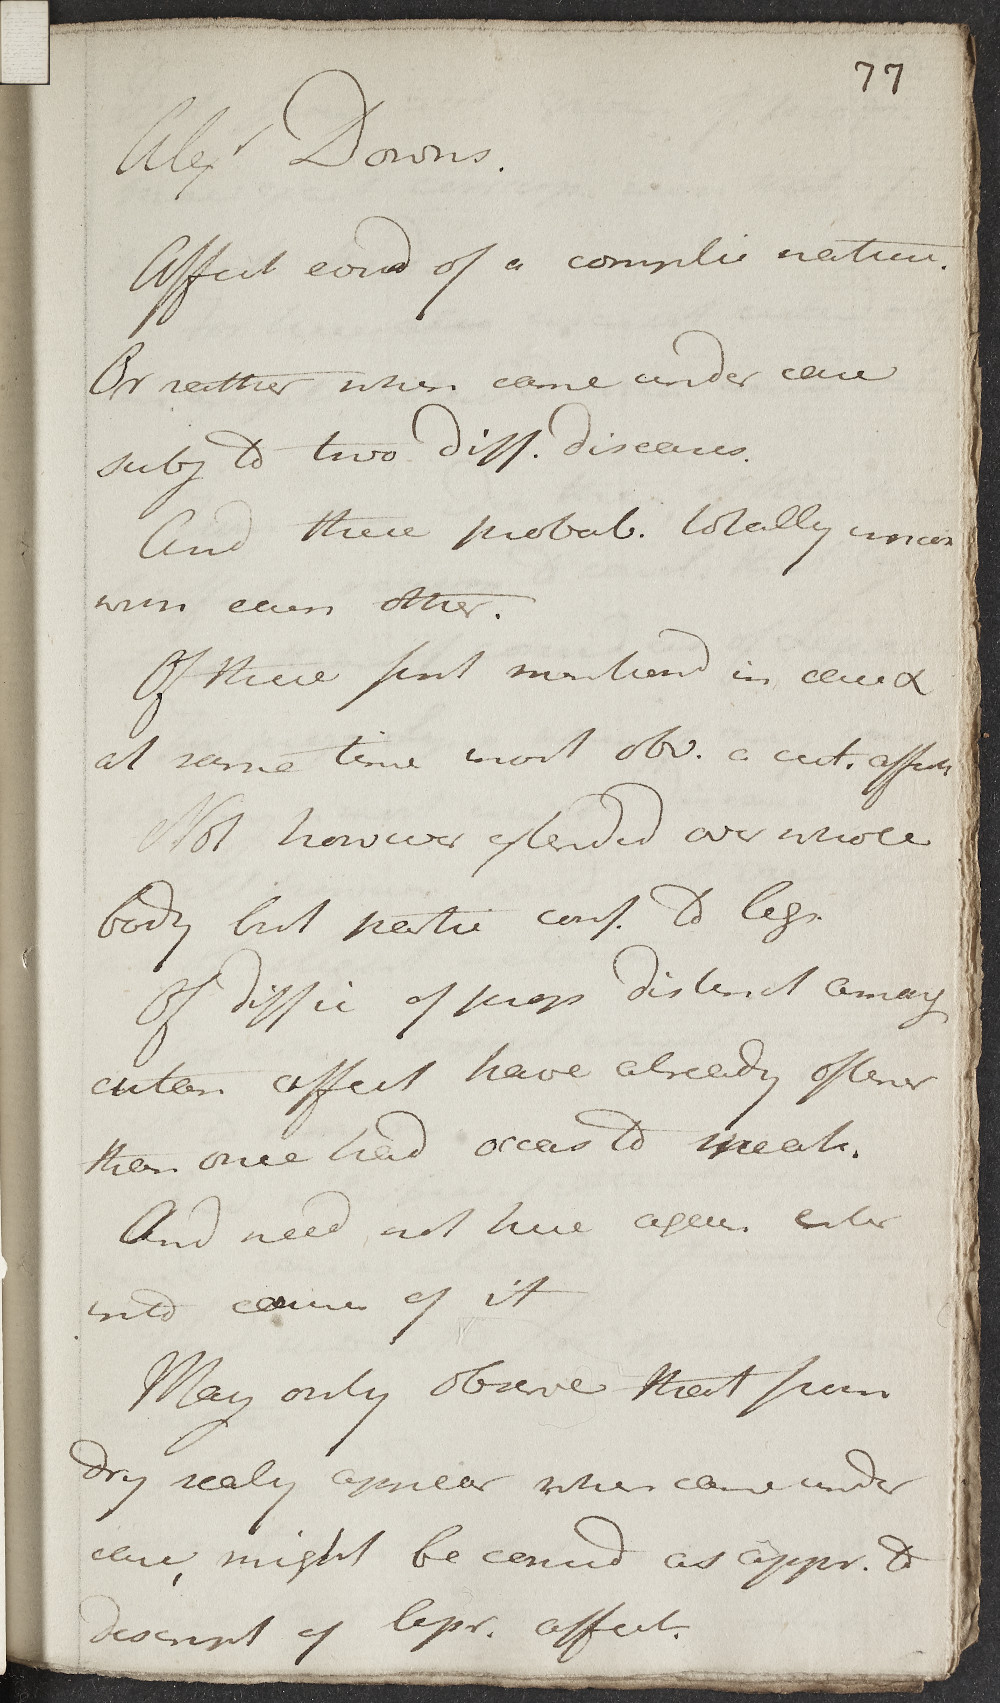 77
Alexr Downs.
Affect consid of a complic nature.
Or rather when came under care
subj to two diff. diseases.
And these probab. totally uncon
with each other.
Of these first mentiond in case &
at same time most obv. a cut. affect
Not however extended over whole
body but partic conf. to legs.
Of diffic of prop distinct among
cutan affect have already oftener
than once had occas to speak.
And need not here again enter
into causes of it
May only observe that from
dry scaly appear when came under
care, might be consid as appr. to
descript of lepr. affect.